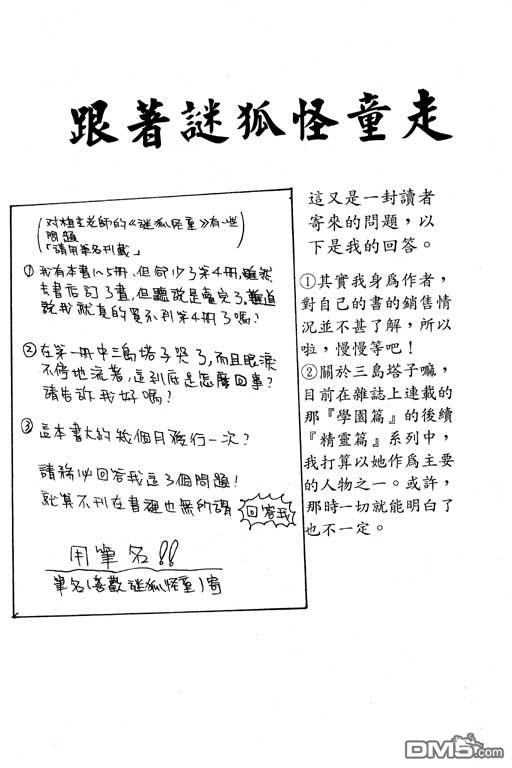 跟著謎狐怪童走
(对植芝老師的《謎狐怪童》有一些
問題
「請用筆名刊載」)
①我有本書1~5冊、但卻少了第4冊,雖然
去書店訂了書,但聽說是賣完了,難道
說我就真的買不到第4冊了嗎?
②在第一冊中三島塔子哭了,而且眼淚
不停地流著,這到底是怎麼回事?
請告訴我好嗎?
③這本書大約幾個月發行一次?
請務必回答我這3個問題!
就算不刊在書裡也無所謂
回答我
用筆名!!
筆名(喜歡謎狐怪童)寄
這又是一封讀者
寄來的問題,以
下是我的回答。
①其實我身爲作者,
對自己的書的銷售情
況並不甚了解,所以
啦,慢慢等吧!
②關於三島塔子嘛,
目前在雜誌上連載的
那『學園篇』的後續
『精靈篇』系列中,
我打算以她作爲主要
的人物之一。或許,
那時一切就能明白了
也不一定。
DM5.com